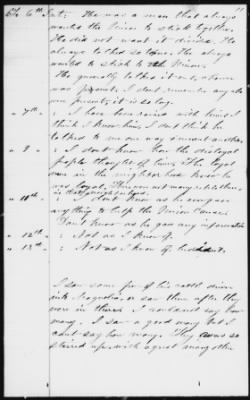 6th Int: He was a man that always
wanted the Union to stick together.
He did not want it divided. He
always talked so to me. He always
wanted to stick to the Union.
He generally talked it out, whoever
was present. I dont remember any one
now present, it is so long.
" 7th " : I have been raised with him & I
think I know him. I dont think he
talked to me one way and out another.
" 8 " : I dont know how the disloyal
people thought of him. The loyal
men in the neighborhood knew he
was loyal. There were not many rebel there
in that neighborhood.
" 10th " : I dont know as he ever gave
anything to help the Union cause.
Dont know as he gave any information
" 12th " : Not as I know of.
" 13th " : Not as I know of he didnt.
I saw some few of his cattle driven
into or saw them after they
were in there. I could not say how
many. I saw a good many but I
cant say how many. They was so
mixed up with a great many other